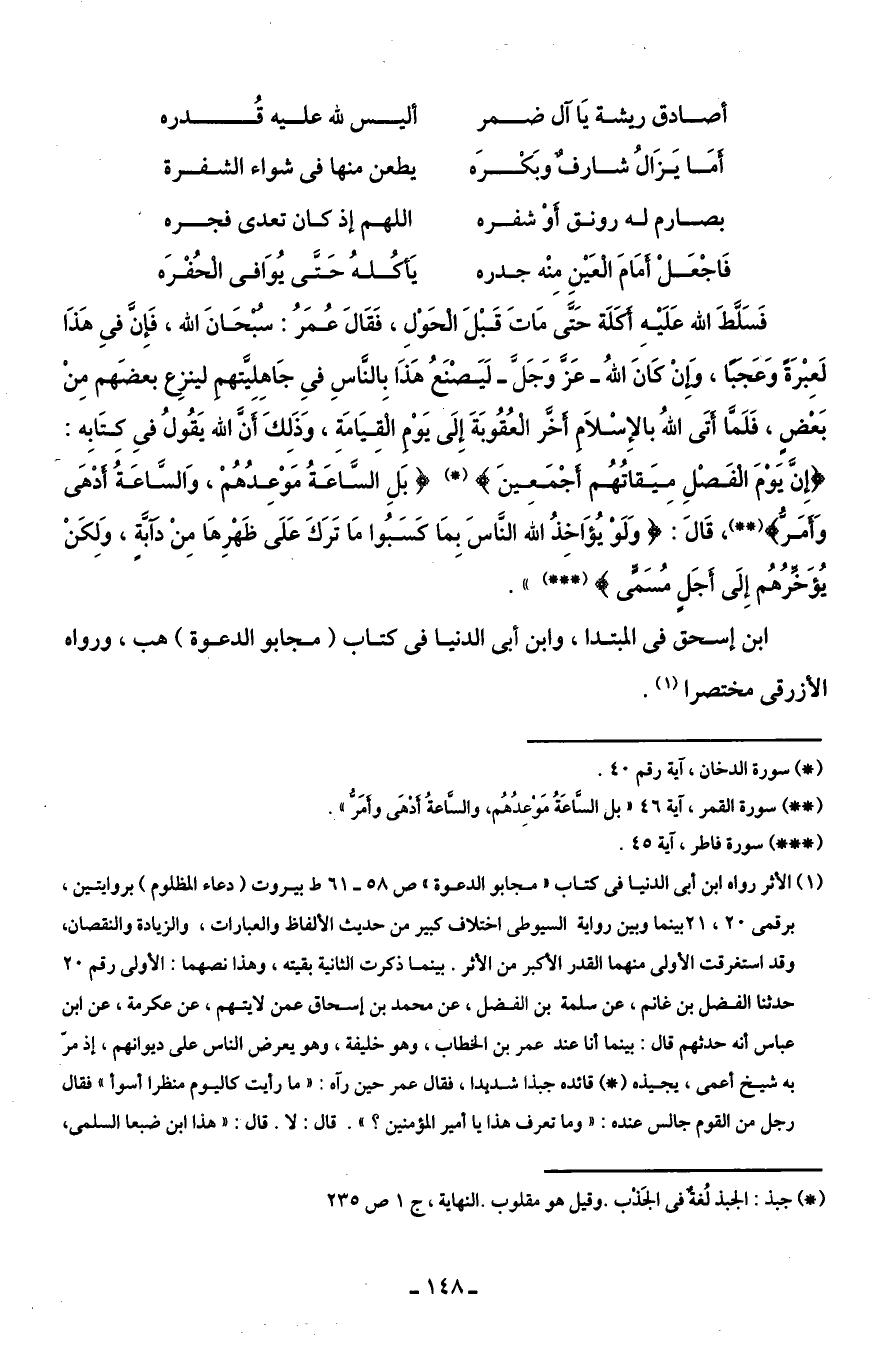 أصـادق ريشة يَا آل ضـمر أليـس لله عليه قُـدره
أَمَـا يَـزَالُ شـارفٌ وبَكْـرَه يطعن منها فى شواء الشـفـرة
بصـارم لـه رونـق أَوْ شفـره اللهـم إذ كـان تعدى فجـره
فَاجْعَـلْ أَمَامَ الْعَيْنِ مِنْه جـدره يَأكُـلـهُ حَـتَّـى يُوَافـى الْحُفْـرَه
فَسَلَّطَ الله عَلَيْـهِ أَكَلَة حَتَّى مَاتَ قَـبْلَ الْحَوْلِ ، فَقَالَ عُـمَرُ : سُبْحَـانَ الله ، فَإِنَّ فى هَذَا
لَعِبْرَةً وَعَجَبًا ، وَإِنْ كَانَ اللهُ ـ عَزَّ وَجَلَّ ـ لَيَـصْنَعُ هَذَا بِالنَّاسِ فى جَاهِليَّتهِم لينزع بعضَهم مِنْ
بَعْضٍ ، فَلَمَّا أَتَى اللهُ بالإِسْـلاَمِ أَخَّر الْعُقُوبَةَ إِلَى يَوْمِ الْقـيَامَة ، وَذَلكَ أَنَّ الله يَقُولُ فى كـتَابِه :
﴿إِنَّ يَوْمَ الْفَصْلِ مـيقَاتُهُـم أَجْمَـعـينَ ﴾ (*) ﴿ بَلِ السَّاعَةُ مَوْعِـدُهُمْ ، وَالسَّاعَـةُ أَدْهَى
وَأَمَـرُّ﴾(**)، قَالَ : ﴿ وَلَوْ يُؤَاخذُ الله النَّاسَ بِمَا كَسَبُوا مَا تَرَكَ عَلَى ظَهْرِهَا مِنْ دَآبَّةٍ ، وَلَكِنْ
يُؤَخِّرُهُم إِلَى أَجَلٍ مُسَمًّى ﴾ (***) » .
ابن إسـحق فى المبتدا ، وابن أبى الدنيـا فى كـتـاب ( مـجابو الدعـوة ) هب ، ورواه
الأزرقى مختصرا (١) .
(*) سورة الدخان ، آية رقم ٤٠ .
(**) سورة القمر ، آية ٤٦ « بل السَّاعَةُ مَوْعِدُهُم، والسَّاعةُ أَدْهَى وأَمَرُّ » .
(***) سورة فاطر ، آية ٤٥ .
(١) الأثر رواه ابن أبى الدنيـا فى كتـاب « مـجابو الدعـوة » ص ٥٨ ـ ٦١ ط بيـروت ( دعاء المظلوم ) بروايتـين ،
برقمى ٢٠ ، ٢١بينما وبين رواية السيوطى اختلاف كبير من حديث الألفاظ والعبارات ، والزيادة والنقصان،
وقد استغرقت الأولى منهما القدر الأكبر من الأثر . بينمـا ذكرت الثانية بقيته ، وهذا نصهما : الأولى رقم ٢٠
حدثنا الفـضل بن غانم ، عن سلمة بن الفـضل ، عن محمد بن إسـحاق عمن لايتـهم ، عن عكرمة ، عن ابن
عباس أنه حدثهم قال : بينما أنا عند عمر بن الخطاب ، وهو خليفة ، وهو يعرض الناس على ديوانهم ، إذ مرّ
به شيـخ أعمى ، يجـبذه (*) قائده جبذا شـديدا ، فقال عمر حين رآه : « ما رأيت كاليـوم منظرا أسوأ » فقال
رجل من القوم جالس عنده : « وما تعرف هذا يا أمير المؤمنين ؟ » . قال : لا . قال : « هذا ابن ضبعا السلمى،
(*) جبذ : الجبذ لُغةٌ فى الجَذْب .وقيل هو مقلوب .النهاية ، ج ١ ص ٢٣٥
ـ ١٤٨ ـ